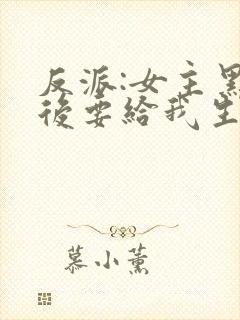 反派:女主黑
後要給我生
慕小薰